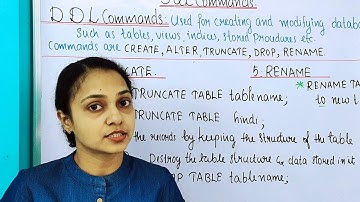 Commands
DDL Commands: Used for creating and modifying databa
Such as tables, views, indices, stored Procedures etc.
Commands are CREATE, ALTER, TRUNCATE, DROP, RENAME.
CATE. 5. RENAME
TRUNCATE TABLE tablename; * RENAME TA
to new t
TRUNCATE TABLE hindi;
the records by keeping the structure of the table
Destroy the table structure & data stored in it
OP TABLE tablename;